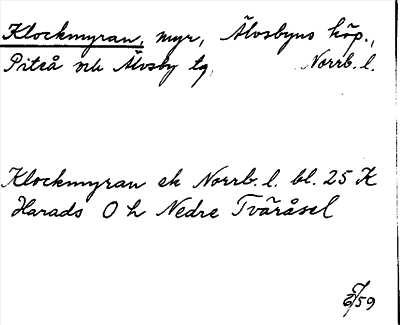 Klockmyran, myr, Älvsbyns köp.,
Piteå och Älvsby tg, Norrb. l.
Klockmyran ek Norrb. l. bl. 25 K
Harads O h Nedre Tväråsel
/59